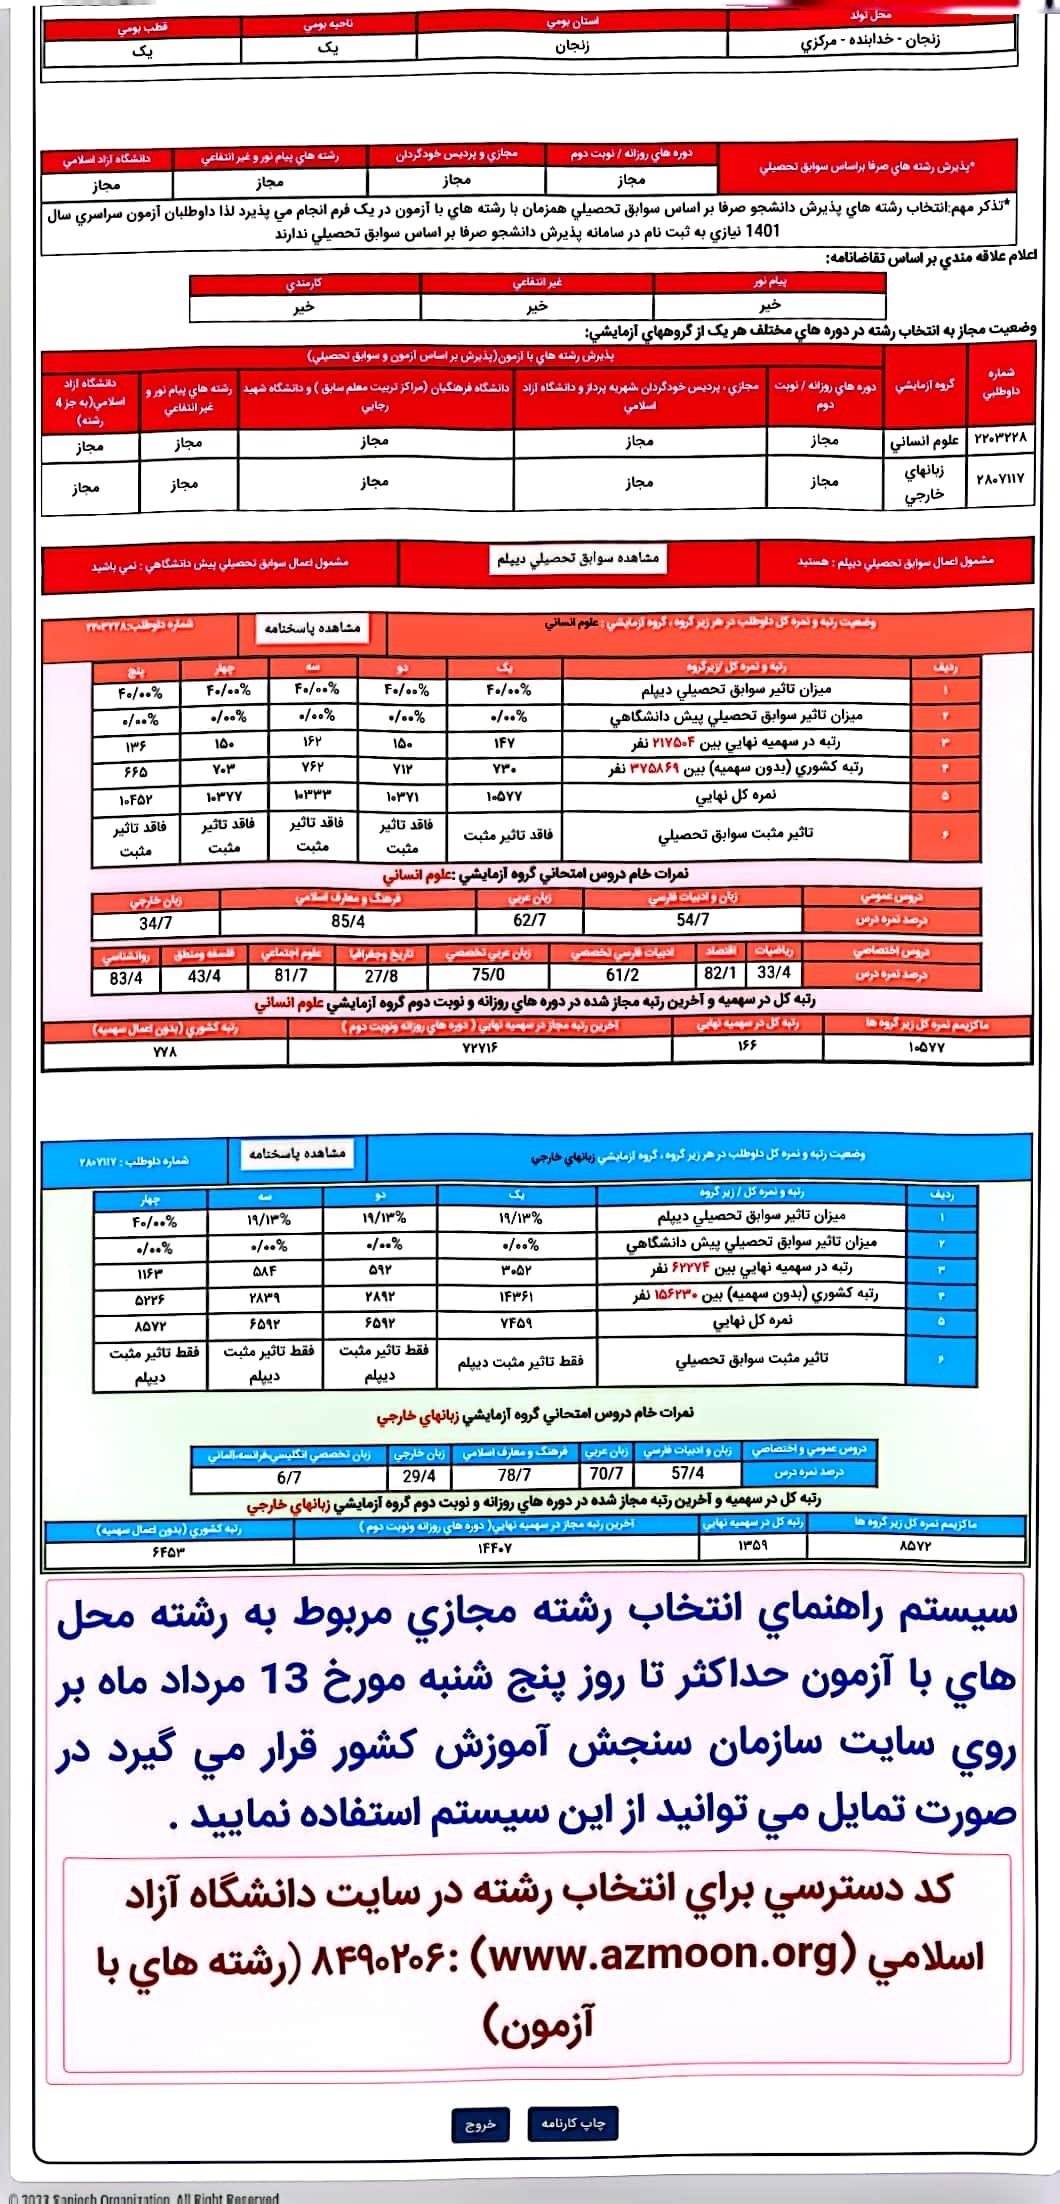 محل تولد	استان بومي	ناحيه بومي	قطب بومي
زنجان - خدابنده - مركزي	زنجان	یک	یک
*پذيرش رشته هاي صرفا براساس سوابق تحصيلي	دوره هاي روزانه / نوبت دوم	مجازي و پرديس خودگردان	رشته هاي پيام نور و غير انتفاعي	دانشگاه آزاد اسلامي
مجاز	مجاز	مجاز	مجاز
*تذكر مهم:انتخاب رشته هاي پذيرش دانشجو صرفا بر اساس سوابق تحصيلي همزمان با رشته هاي با آزمون در يک فرم انجام مي پذيرد لذا داوطلبان آزمون سراسري سال
1401 نيازي به ثبت نام در سامانه پذيرش دانشجو صرفا بر اساس سوابق تحصيلي ندارند
اعلام علاقه مندي بر اساس تقاضانامه:
پيام نور	غير انتفاعي	كارمندي
خير	خير	خير
وضعيت مجاز به انتخاب رشته در دوره هاي مختلف هر يک از گروههاي آزمايشي:
شماره داوطلبي	گروه آزمايشي	پذيرش رشته هاي با آزمون(پذيرش بر اساس آزمون و سوابق تحصيلي)
دوره هاي روزانه / نوبت دوم	مجازي ، پرديس خودگردان ،شهريه پرداز و دانشگاه آزاد اسلامي	دانشگاه فرهنگيان (مراكز تربيت معلم سابق ) و دانشگاه شهيد رجايي	رشته هاي پيام نور و غير انتفاعي	دانشگاه آزاد اسلامي(به جز 4 رشته)
۲۲۰۳۲۲۸	علوم انساني	مجاز	مجاز	مجاز	مجاز	مجاز
۲۸۰۷۱۱۷	زبانهاي خارجي	مجاز	مجاز	مجاز	مجاز	مجاز
مشمول اعمال سوابق تحصيلي ديپلم : هستيد	مشاهده سوابق تحصيلي ديپلم	مشمول اعمال سوابق تحصيلي پيش دانشگاهي : نمي باشيد
وضعيت رتبه و نمره كل داوطلب در هر زير گروه ، گروه آزمايشي : علوم انساني	مشاهده پاسخنامه	شماره داوطلب:۲۲۰۳۲۲۸
رديف	رتبه و نمره كل /زيرگروه	یک	دو	سه	چهار	پنج
۱	ميزان تاثير سوابق تحصيلي ديپلم	۴۰/۰۰%	۴۰/۰۰%	۴۰/۰۰%	۴۰/۰۰%	۴۰/۰۰%
۲	ميزان تاثير سوابق تحصيلي پيش دانشگاهي	۰/۰۰%	۰/۰۰%	۰/۰۰%	۰/۰۰%	۰/۰۰%
۳	رتبه در سهميه نهايي بين ۲۱۷۵۰۴ نفر	۱۴۷	۱۵۰	۱۶۲	۱۵۰	۱۳۶
۴	رتبه كشوري (بدون سهميه) بين ۳۷۵۸۶۹ نفر	۷۳۰	۷۱۲	۷۶۲	۷۰۳	۶۶۵
۵	نمره كل نهايي	۱۰۵۷۷	۱۰۳۷۱	۱۰۳۳۳	۱۰۳۷۷	۱۰۴۵۲
۶	تاثير مثبت سوابق تحصيلي	فاقد تاثير مثبت	فاقد تاثير مثبت	فاقد تاثير مثبت	فاقد تاثير مثبت	فاقد تاثير مثبت
نمرات خام دروس امتحاني گروه آزمايشي :علوم انساني
دروس عمومي	زبان و ادبيات فارسي	زبان عربي	فرهنگ و معارف اسلامي	زبان خارجي
درصد نمره درس	54/7	62/7	85/4	34/7
دروس اختصاصي	رياضيات	اقتصاد	ادبيات فارسي تخصصي	زبان عربي تخصصي	تاريخ وجغرافيا	علوم اجتماعي	فلسفه ومنطق	روانشناسي
درصد نمره درس	33/4	82/1	61/2	75/0	27/8	81/7	43/4	83/4
رتبه كل در سهميه و آخرين رتبه مجاز شده در دوره هاي روزانه و نوبت دوم گروه آزمايشي علوم انساني
ماكزيمم نمره كل زير گروه ها	رتبه كل در سهميه نهايي	آخرين رتبه مجاز در سهميه نهايي ( دوره هاي روزانه ونوبت دوم )	رتبه كشوري (بدون اعمال سهميه)
۱۰۵۷۷	۱۶۶	۷۲۷۱۶	۷۷۸
وضعيت رتبه و نمره كل داوطلب در هر زير گروه ، گروه آزمايشي زبانهاي خارجي	مشاهده پاسخنامه	شماره داوطلب : ۲۸۰۷۱۱۷
رديف	رتبه و نمره كل / زير گروه	یک	دو	سه	چهار
۱	ميزان تاثير سوابق تحصيلي ديپلم	۱۹/۱۳%	۱۹/۱۳%	۱۹/۱۳%	۴۰/۰۰%
۲	ميزان تاثير سوابق تحصيلي پيش دانشگاهي	۰/۰۰%	۰/۰۰%	۰/۰۰%	۰/۰۰%
۳	رتبه در سهميه نهايي بين ۶۲۲۷۴ نفر	۳۰۵۲	۵۹۲	۵۸۴	۱۱۶۳
۴	رتبه كشوري (بدون سهميه) بين ۱۵۶۲۳۰ نفر	۱۴۳۶۱	۲۸۹۲	۲۸۳۹	۵۲۲۶
۵	نمره كل نهايي	۷۴۵۹	۶۵۹۲	۶۵۹۲	۸۵۷۲
۶	تاثير مثبت سوابق تحصيلي	فقط تاثير مثبت ديپلم	فقط تاثير مثبت ديپلم	فقط تاثير مثبت ديپلم	فقط تاثير مثبت ديپلم
نمرات خام دروس امتحاني گروه آزمايشي زبانهاي خارجي
دروس عمومي و اختصاصي	زبان و ادبيات فارسي	زبان عربي	فرهنگ و معارف اسلامي	زبان خارجي	زبان تخصصي انگليسي،فرانسه،آلماني
درصد نمره درس	57/4	70/7	78/7	29/4	6/7
رتبه كل در سهميه و آخرين رتبه مجاز شده در دوره هاي روزانه و نوبت دوم گروه آزمايشي زبانهاي خارجي
ماكزيمم نمره كل زير گروه ها	رتبه كل در سهميه نهايي	آخرين رتبه مجاز در سهميه نهايي( دوره هاي روزانه ونوبت دوم )	رتبه كشوري (بدون اعمال سهميه)
۸۵۷۲	۱۳۵۹	۱۴۴۰۷	۶۴۵۳
سيستم راهنماي انتخاب رشته مجازي مربوط به رشته محل
هاي با آزمون حداكثر تا روز پنج شنبه مورخ 13 مرداد ماه بر
روي سايت سازمان سنجش آموزش كشور قرار مي گيرد در
صورت تمايل مي توانيد از اين سيستم استفاده نماييد .
كد دسترسي براي انتخاب رشته در سايت دانشگاه آزاد
اسلامي (www.azmoon.org) :۸۴۹۰۲۰۶ (رشته هاي با
آزمون)
چاپ كارنامه	خروج
© 2022 Sanjesh Organization. All Right Reserved